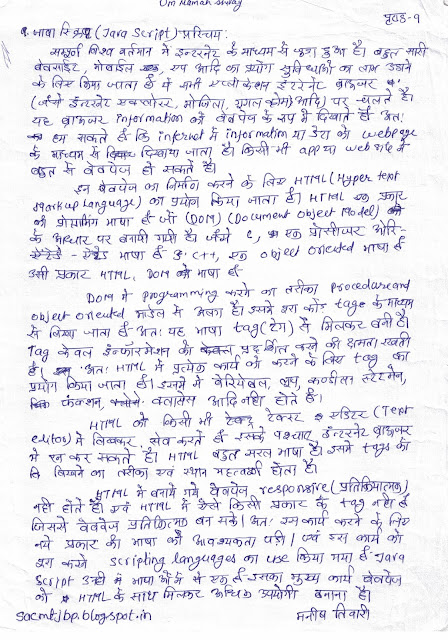 Om Namah Shivay
पृष्ठ-१
१. जावा स्क्रिप्ट (Java Script) परिचय:
सम्पूर्ण विश्व वर्तमान में इंटरनेट के माध्यम से जुड़ा हुआ है। बहुत सारी
वेबसाईट, मोबाईल एप आदि का प्रयोग सुविधाओं का लाभ उठाने
के लिए किया जाता है ये सभी एप्लीकेशन इंटरनेट ब्राऊजर
(जैसे इंटरनेट एक्स्प्लोरर, मोजिला, गूगल क्रोम आदि) पर चलते है।
यह ब्राऊजर information को वेबपेज के रूप में दिखाते हैं अत:
हम कह सकते हैं कि internet में information या डेटा को webpage
के माध्यम से दिखाया जाता है। किसी भी app या website में
बहुत से वेबपेज हो सकते हैं।
इन वेबपेज का निर्माण करने के लिए HTML (Hyper text
Markup Language) का प्रयोग किया जाता है। HTML एक प्रकार
की प्रोग्रामिंग भाषा है जो (DOM) (Document Object Model)
के आधार पर बनायी गयी है। जैसे C, एक प्रोसीजर ओरि-
येन्टेड भाषा है C++, एक object oriented भाषा है
उसी प्रकार HTML, DOM की भाषा है-
DOM में programming करने का तरीका procedure and
object oriented मॉडल से अलग है। इसमें सारा कोड tags के माध्यम
से लिखा जाता है अत: यह भाषा tag (टैग) से मिलकर बनी है।
Tag केवल इन्फॉरमेशन को प्रदर्शित करने की क्षमता रखती
है। अत: HTML में प्रत्येक कार्य को करने के लिए tag का
प्रयोग किया जाता है। इसमें में वेरियेबल, लूप, कन्डीशनल स्टेटमेन्ट,
फंक्शन, क्लासेस आदि नहीं होते है।
HTML को किसी भी टेक्स्ट एडिटर (Text
editor) में लिखकर, सेव करते है इसके पश्चात इंटरनेट ब्राऊजर
में रन कर सकते हैं। HTML बहुत सरल भाषा है। इसमें tags का
लिखने का तरीका एवं स्थान महत्वपूर्ण होता है।
HTML में बनाये गये वेबपेज responsive (प्रतिक्रियात्मक)
नहीं होते है। एवं HTML में ऐसे किसी प्रकार के tag नहीं है
जिससे वेबपेज प्रतिक्रियात्मक बन सके। अत: इस कार्य करने के लिए
नये प्रकार की भाषा की आवश्यकता पड़ी। एवं इस कार्य को
करने scripting languages का use किया गया है- Java
Script उन्हीं में भाषाओं में से एक है इसका मुख्य कार्य वेबपेज
को HTML के साथ मिलकर अधिक उपयोगी बनाना है।
sacmktjbp.blogspot.in
मनीष तिवारी